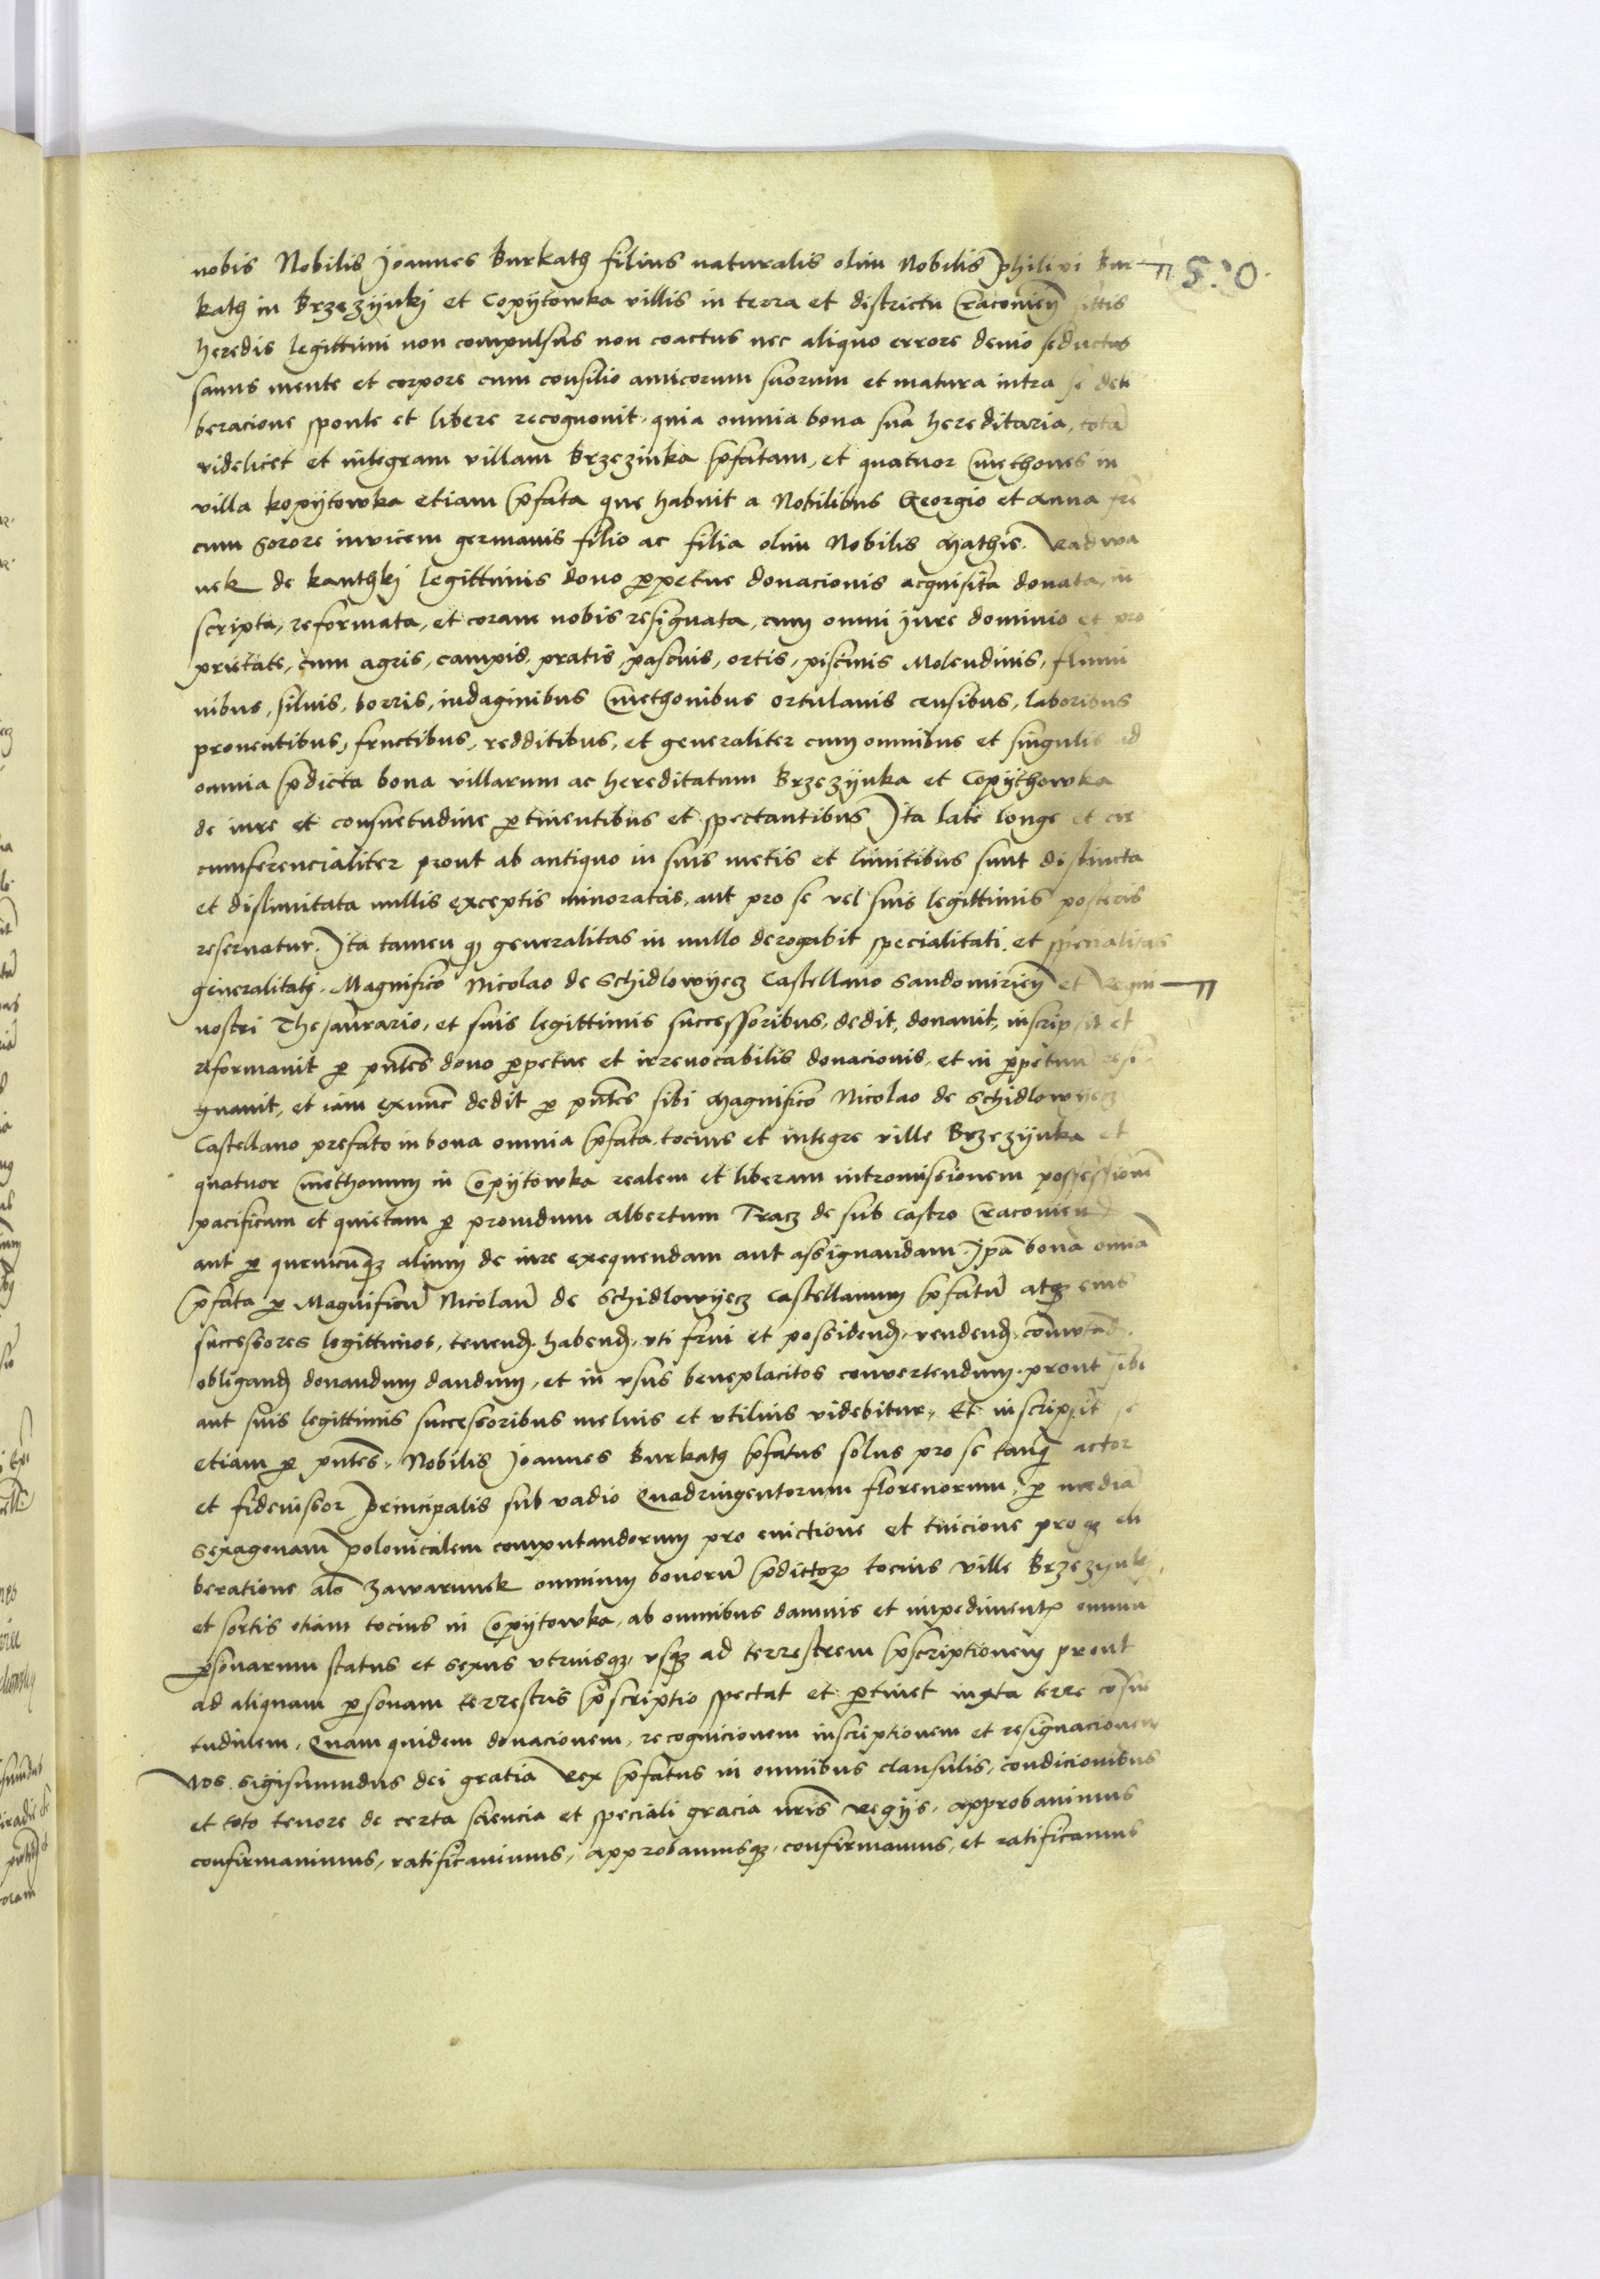 nobis Nobilis Joannes Burkath filius naturalis olim Nobilis Philippi Bur
kath in Brzezÿnkj et Copÿtowka villis in terra et districtu Cracovien̄ sittis
heredis legittimi non compulsus non coactus nec aliquo errore devio seductus
sanus mente et corpore cum consilio amicorum suorum et matura intra se deli
beracione sponte et libere recognovit, quia omnia bona sua hereditaria, totā
videlicet et integram villam Brzezinka p̄fatam, et quatuor Cmethones in
villa kopÿtowka etiam p̄fata que habuit a Nobilibus Georgio et Anna fr̄e
cum Sorore invicem germanis filio ac filia olim Nobilis Mathie. Radwa
nek de kanthkj legittimis dono ꝑpetue donacionis acquisita donata, in
scripta, reformata, et coram nobis resignata, cum omni jure dominio et pro
prietate, cum agris, campis, pratis, pascuis, ortis, piscinis Molendinis, flumi
nibus, silvis, borris, indaginibus Cmethonibus ortulanis censibus, laboribus
proventibus, fructibus, redditibus, et generaliter cum omnibus et singulis ad
omnia p̄dicta bona villarum ac hereditatum Brzezÿnka et Copÿthowka
de iure et consuetudine ꝑtinentibus et spectantibus Ita late longe et cir
cumferencialiter prout ab antiquo in suis metis et limitibus sunt distincta
et dislimitata nullis exceptis minoratis, aut pro se vel suis legittimis posteris
reservatur. Ita tamen ꝙ generalitas in nullo derogabit specialitati, et specialitas
generalitati. Magnifico Nicolao de Schidlowÿecz Castellano Sandomirien̄ et Regni
nostri Thesaurario, et suis legittimis successoribus, dedit, donavit, inscripsit et
reformavit ꝑ pn̄tes dono ꝑpetue et irrevocabilis donacionis, et in ꝑpetuū resi
gnavit, et iam exnunc dedit ꝑ pn̄tes sibi Magnifico Nicolao de Schidlowÿecz
Castellano prefato in bona omnia p̄fata tocius et integre ville Brzezÿnka et
quatuor Cmethonum in Copÿtowka realem et liberam intromissionem possessionē
pacificam et quietam ꝑ providum Albertum Tracz de sub castro Cracovien̄
aut ꝑ quemcūqꝫ alium de iure exequendam aut assignandam. Ip̄a bona omīa
p̄fata ꝑ Magnificū Nicolaū de Schidlowÿecz Castellanum p̄fatū atqꝫ eius
successores legittimos, tenenđ, habenđ, uti frui et possidenđ, vendenđ, cōmutanđ,
obliganđ donandum dandum, et in usus beneplacitos convertendum, prout sibi
aut suis legittimis successoribus melius et utilius videbitur, Et inscripsit se
etiam ꝑ pn̄tes, Nobilis Joannes Burkath p̄fatus solus pro se tanq̄ actor
et fideiussor principalis sub vadio Quadringentorum florenorum, ꝑ mediā
sexagenam polonicalem computandorum pro evictione et tuicione proqꝫ eli
beratione al̄s Zawarunek omnium bonorū p̄dictoꝝ tocius ville Brzezÿnkj
et sortis etiam tocius in Copÿtowka, ab omnibus damnis et impedimentꝭ omniū
ꝑsonarum status et sexus utriusqꝫ, usqꝫ ad terrestrem p̄scriptionem prout
ad aliquam ꝑsonam terrestris p̄scriptio spectat et ꝑtinet iuxta terre cōsue
tudinem, Quam quidem donacionem, recognicionem inscriptionem et resignacionem
Nos Sigismundus dei gratia Rex p̄fatus in omnibus clausulis, condicionibus
et toto tenore de certa sciencia et speciali gracia nr̄is regÿs, approbavimus
confirmavimus, ratificavimus, approbamusqꝫ, confirmamus, et ratificamus